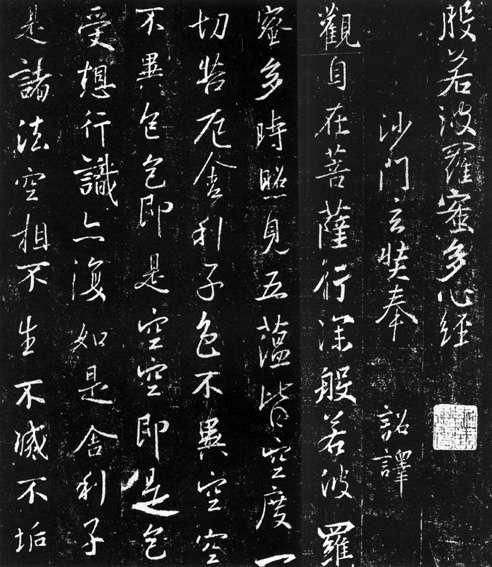 般若波羅蜜多心經
沙門玄奘奉 詔譯
觀自在菩薩行深般若波羅
蜜多時照見五蘊皆空度一
切苦厄舍利子色不異空空
不異色色即是空空即是色
受想行識亦復如是舍利子
是諸法空相不生不滅不垢